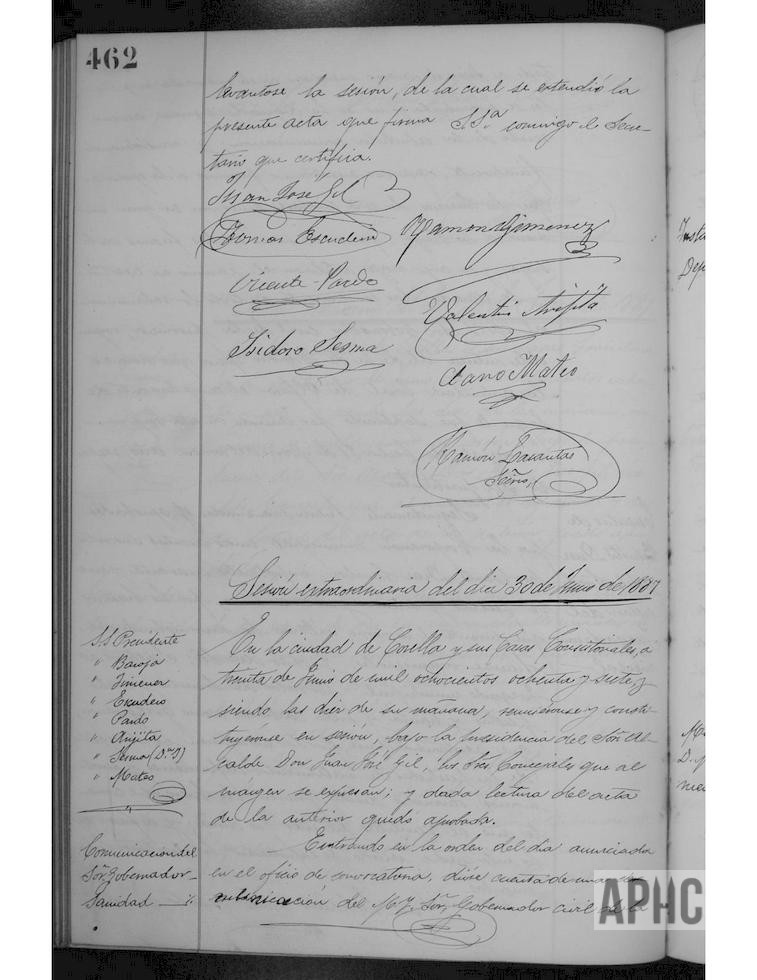 462
levantose la sesión, de la cual se extendió la
presente acta que firma S.S.ª conmigo el Secre-
tario que certifica.
Juan José Gil
Tomas Escudero
Ramon Gimenez
Vicente Pardo
Valentin Arigita
Isidoro Sesma
Mateo
Ramón
Srio,
Sesión extraordinaria del dia 30 de Junio de 1887
S.S. Presidente
" Baroja
" Jimenez
" Escudero
" Pardo
" Arijita
" Sesma (Dn. I)
" Mateo
En la ciudad de Corella y sus Casas Consistoriales, a
treinta de Junio de mil ochocientos ochenta y siete, y
siendo las diez de su mañana, reunieronse y consti-
tuyéronse en sesión, bajo la Presidencia del Sor. Al-
calde Don Juan José Gil, los Sres. Concejales que al
margen se expresan; y dada lectura del acta
de la anterior quedó aprobada.
Comunicacion del
Sor. Gobernador
Sanidad
Entrando en la orden del dia anunciada
en el oficio de convocatoria, dióse cuenta de una
comunicación del M. Y. Sor. Gobernador civil de la
APHC